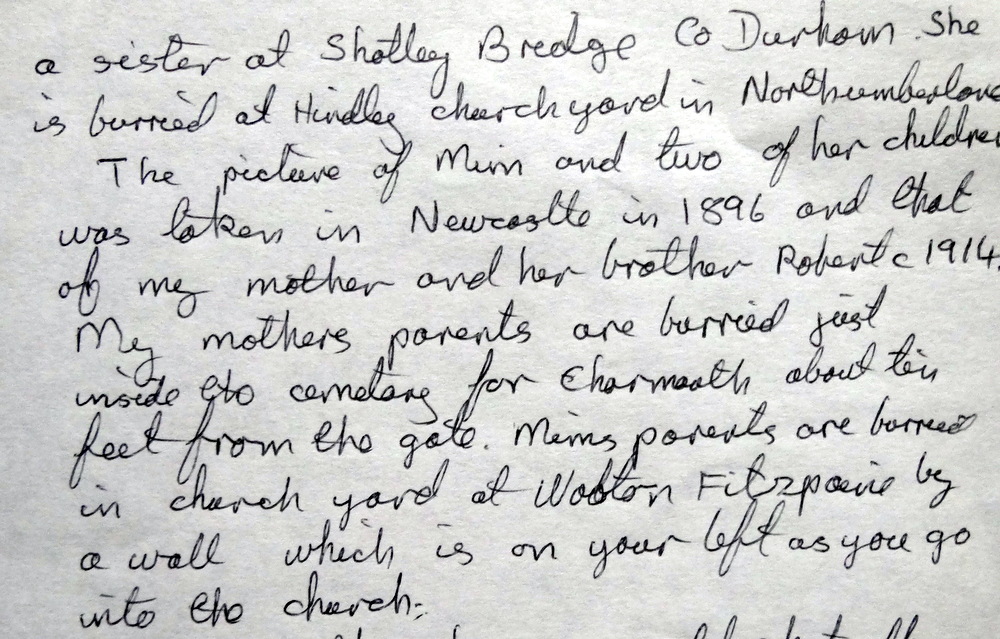 a sister at Shotley Bredge Co Durham. She
is burried at Hindley church yard in Northumberland
The picture of Mim and two of her children
was taken in Newcastle in 1896 and that
of my mother and her brother Robert c 1914.
My mothers parents are burried just
inside the cemetary for Charmouth about ten
feet from the gate. Mims parents are burried
in church yard at Wooton Fitzpaine by
a wall which is on your left as you go
into the church.